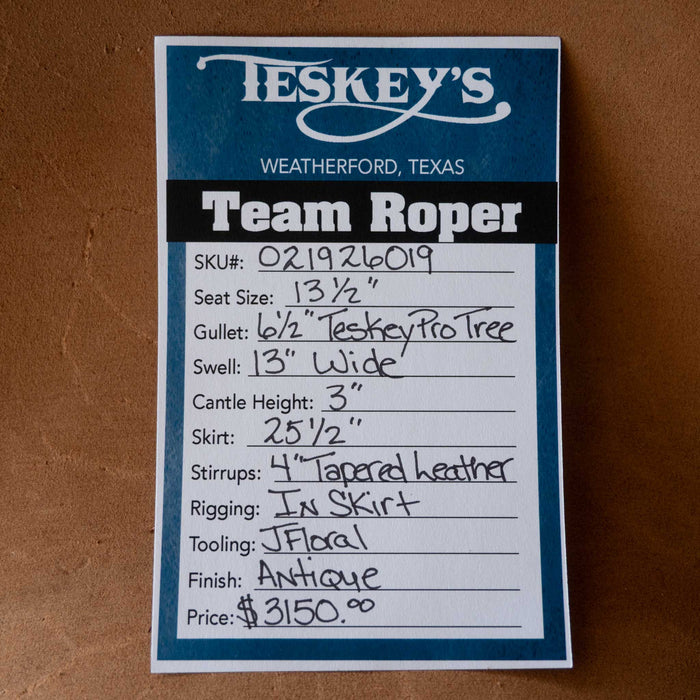 TESKEY'S
WEATHERFORD, TEXAS
Team Roper
SKU#: 021926019
Seat Size: 13 1/2"
Gullet: 6 1/2" Teskey Pro Tree
Swell: 13" Wide
Cantle Height: 3"
Skirt: 25 1/2"
Stirrups: 4" Tapered Leather
Rigging: In Skirt
Tooling: JFloral
Finish: Antique
Price: $3150.00